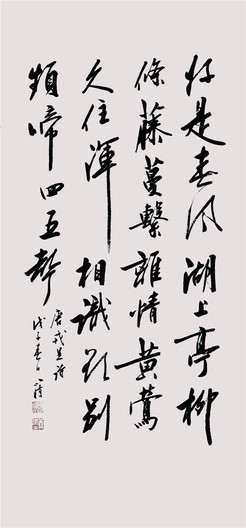 好是春风湖上亭柳
條藤蔓繫離情黄莺
久住渾相識欲别
頻啼四五聲
唐戎昱诗
戊子春日